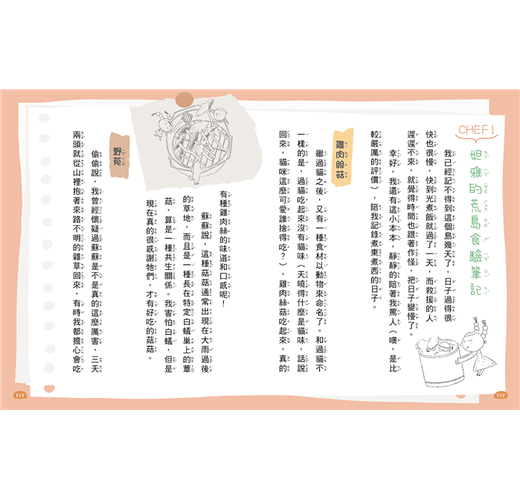 CHEF!
妲雅的荒島食驗筆記
我已經記不得到這個島幾天了，日子過得很
快也很慢，快到光煮飯就過了一天，而救援的人
遲遲不來，就覺得時間也跟著作怪，把日子變慢了。
幸好，我還有這小本本，靜靜的陪著我罵人（噢，是比
較嚴厲的評價），陪我記錄煮東煮西的日子。
雞肉絲菇
繼過貓之後，又有一種食材以動物來命名了。和過貓不
一樣的是，過貓吃起來沒有貓味（天曉得什麼是貓味，話說
回來，貓咪這麼可愛誰捨得吃？），雞肉絲菇吃起來，真的
有種雞肉絲的味道和口感呢！
蘇蘇說，這種菇菇通常出現在大雨過後
的草地，而且是一種長在特定白蟻巢上的蕈
菇，算是一種共生關係。我害怕白蟻，但是
現在真的很感謝牠們，才有好吃的菇菇。
野菀
偷偷說，我曾經懷疑過蘇蘇是不是真的這麼厲害，三天
兩頭就從山裡抱著來路不明的雜草回來，有時我都擔心會吃